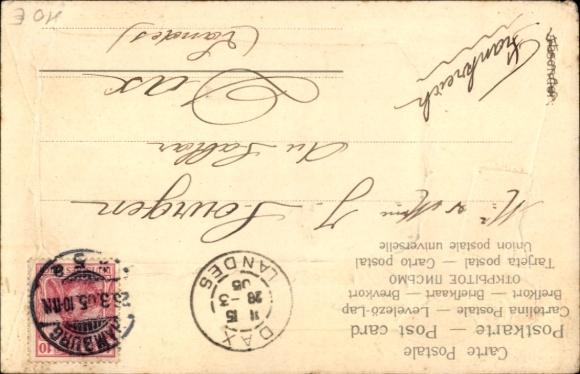 Carte Postale
Postkarte — Post card
Cartolina Postale — Levelező-Lap
Brefkort — Briefkaart — Brevkort
ОТКРЫТОЕ ПИСЬМО
Tarjeta postal — Carto postal
Union postale universelle
DAX
11 15
28 - 3
05
LANDES
HAMBURG
26.3.05.10-11N.
5 a
10
Mr & Mme J. Lourgen
Au Sablar
Dax
(Landes)
Frankreich
Absender:
10 E